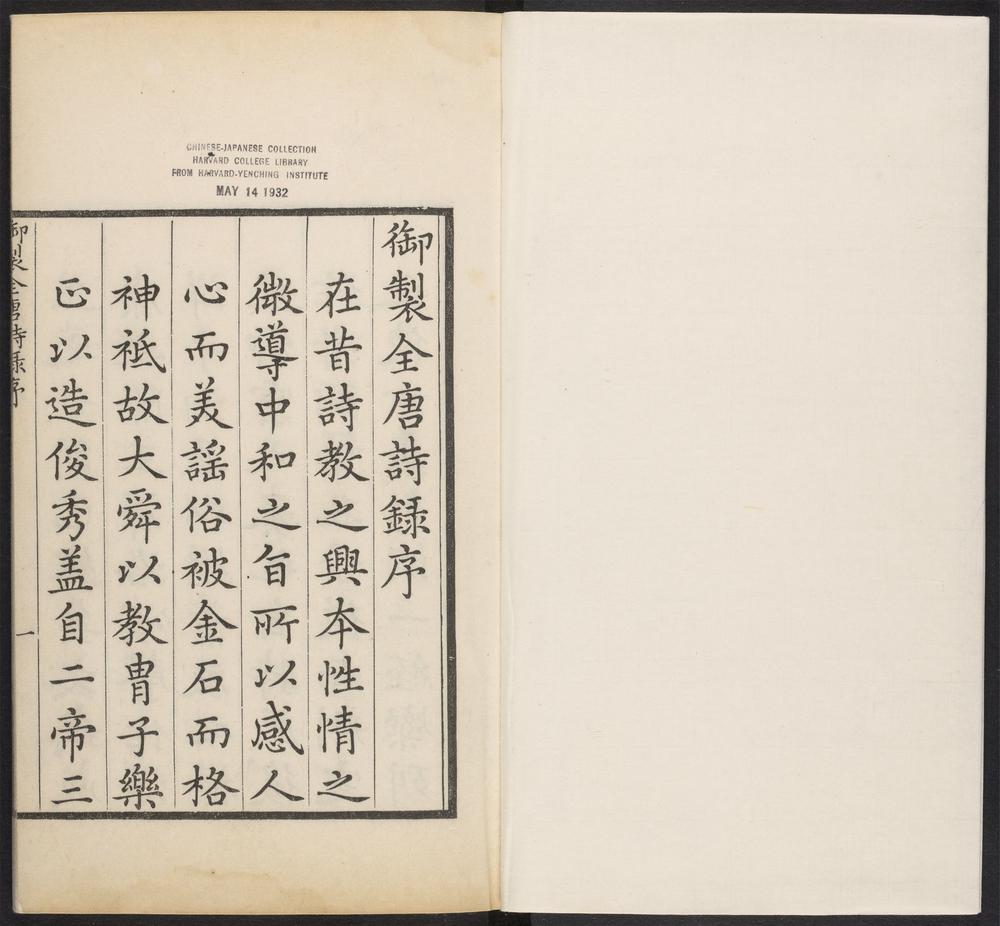 CHINESE-JAPANESE COLLECTION
HARVARD COLLEGE LIBRARY
FROM HARVARD-YENCHING INSTITUTE
MAY 14 1932
御製全唐詩録序
在昔詩教之興本性情之
微導中和之旨所以感人
心而美謡俗被金石而格
神祗故大舜以教胄子樂
正以造俊秀葢自二帝三
御製全唐詩録序
一